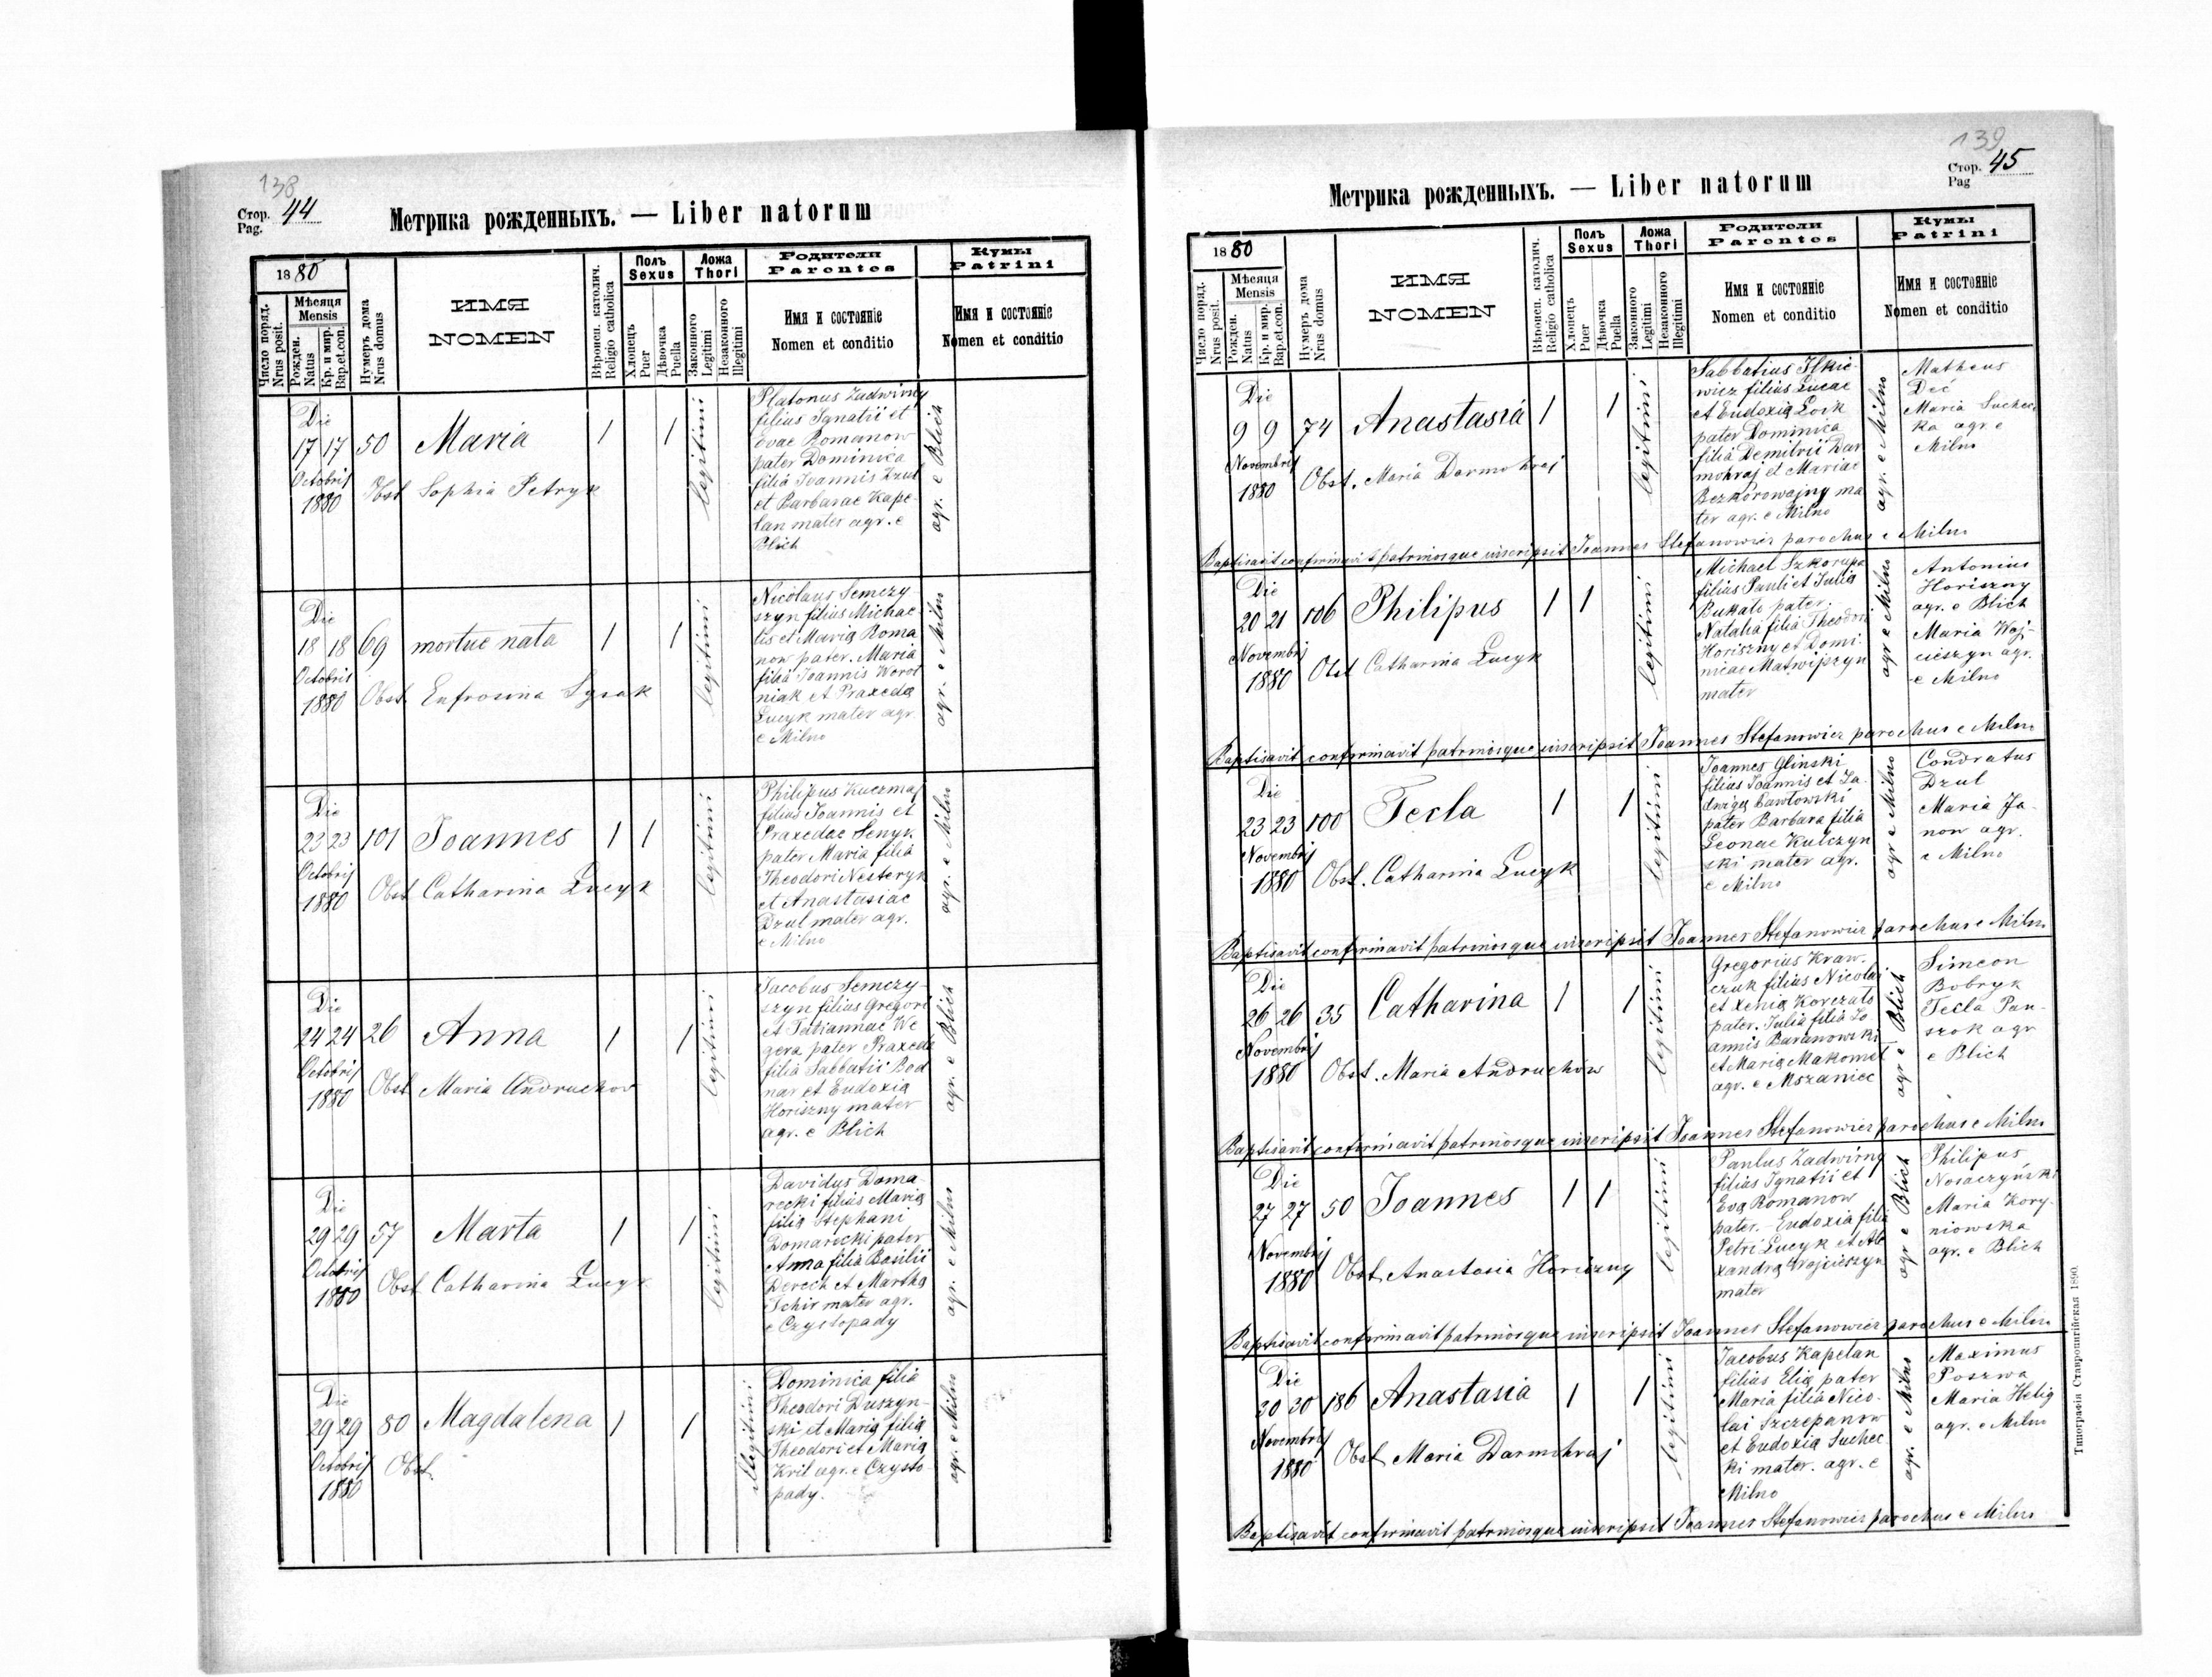 138
Стор. 44
Pag.
Метрика рожденныхъ. — Liber natorum
1880
Число поряд.
Nrus posit.
Мѣсяця
Mensis
Рожден.
Natus
Кр. и мир.
Bap.et.con.
Нумеръ дома
Nrus domus
ИМЯ
NOMEN
Вѣроисп. католич.
Religio catholica
Полъ
Sexus
Хлопецъ
Puer
Дѣвочка
Puella
Ложа
Thori
Законного
Legitimi
Незаконного
Illegitimi
Родители
Parentes
Имя и состоянiе
Nomen et conditio
Кумы
Patrini
Имя и состоянiе
Nomen et conditio
Die
17 17 50 Maria 1 1
Octobris
1880 Obst Sophia Petryk
legitimi
Platonus Zadwirny
filius Ignatii et
Evae Romanow
pater Dominica
filia Joannis Dzul
et Barbarae Kape-
lan mater agr. e
Blich
agr. e Blich
Die
18 18 69 mortue nata 1 1
Octobris
1880 Obst. Eufrosina
legitimi
Nicolaus Semczy
szyn filius Michae
lis et Maria Roma
now pater. Maria
filia Joannis Worot
niak et Praxeda
Lucyk mater agr.
e Milno
agr. e Milno
Die
23 23 101 Joannes 1 1
Octobris
1880 Obst Catharina Lucyk
legitimi
Philipus Kuczma
filius Joannis et
Praxedae Senyk
pater Maria filia
Theodori Nesteryk
et Anastasiae
Dzul mater agr.
e Milno
agr. e Milno
Die
24 24 26 Anna 1 1
Octobris
1880 Obst Maria Andruchow
legitimi
Jacobus Semczy-
szyn filius Gregori
et Tatiannae We
gera pater Praxeda
filia Sabbatii Bod
nar et Eudoxia
Horiszny mater
agr. e Blich
agr. e Blich
Die
29 29 57 Marta 1 1
Octobris
1880 Obst Catharina Lucyk
legitimi
Davidus Doma-
recki filius Maria
filia Stephani
Domarecki pater
Anna filia Basilii
Derech et Martha
mater agr.
e Czystopady
agr. e Milno
Die
29 29 80 Magdalena 1 1
Octobris
1880 Obst.
illegitimi
Dominica filia
Theodori Duszyn-
ski et Maria filia
Theodori et Maria
Kril agr. e Czysto
pady.
agr. e Milno
139
Стор. 45
Pag
Метрика рожденныхъ. — Liber natorum
1880
Число поряд.
Nrus posit.
Мѣсяця
Mensis
Рожден.
Natus
Кр. и мир.
Bap.et.con.
Нумеръ дома
Nrus domus
ИМЯ
NOMEN
Вѣроисп. католич.
Religio catholica
Полъ
Sexus
Хлопецъ
Puer
Дѣвочка
Puella
Ложа
Thori
Законного
Legitimi
Незаконного
Illegitimi
Родители
Parentes
Имя и состоянiе
Nomen et conditio
Кумы
Patrini
Имя и состоянiе
Nomen et conditio
Die
9 9 74 Anastasia 1 1
Novembris
1880 Obst. Maria Darmohraj
legitimi
Sabbatius Ilkie-
wicz filius Lucae
et Eudoxia
pater Dominica
filia Demitrii Dar
mohraj et Mariae
Bezkorowajny ma
ter agr. e Milno
agr. e Milno
Matheus
Deć
Maria Suchec-
ka agr e
Milno
Baptisavit confirmavit patrinosque inscripsit Joannes Stefanowicz parochus e Milno
Die
20 21 106 Philipus 1 1
Novembris
1880 Obst Catharina Lucyk
legitimi
Michael Szkorupa
filius Pauli et Julia
Bukało pater.
Natalia filia Theodori
Horiszny et Domi-
nicae Matwijszyn
mater
agr e Milno
Antonius
Horiszny
agr. e Blich
Maria Woj-
cieszyn agr.
e Milno
Baptisavit confirmavit patrinosque inscripsit Joannes Stefanowicz parochus e Milno
Die
23 23 100 Tecla 1 1
Novembris
1880 Obst. Catharina Lucyk
legitimi
Joannes Glinski
filius Joannis et Ja-
dwiga Pawłowski
pater Barbara filia
Leonae Kulczyn
ski mater agr.
e Milno
agr e Milno
Condratus
Dzul
Maria Ja-
now agr.
e Milno
Baptisavit confirmavit patrinosque inscripsit Joannes Stefanowicz parochus e Milno
Die
26 26 35 Catharina 1 1
Novembris
1880 Obst. Maria Andruchow
legitimi
Gregorius Kraw-
czuk filius Nicolai
et Xenia Korczało
pater. Julia filia Jo
annis Baranowski
et Maria Makomet
agr. e Mszaniec
agr e Blich
Simeon
Bobryk
Tecla Pan-
szok agr
e Blich
Baptisavit confirmavit patrinosque inscripsit Joannes Stefanowicz parochus e Milno
Die
27 27 50 Joannes 1 1
Novembris
1880 Obst. Anastasia Horiszny
legitimi
Paulus Zadwirny
filius Ignatii et
Eva Romanow
pater.- Eudoxia filia
Petri Lucyk et Ale
xandra Wojciszyn
mater
agr e Blich
Philipus
Nosaczyński
Maria Kory-
niowska
agr. e Blich
Baptisavit confirmavit patrinosque inscripsit Joannes Stefanowicz parochus e Milno
Die
30 30 186 Anastasia 1 1
Novembris
1880 Obst Maria Darmohraj
legitimi
Jacobus Kapelan
filius Elia pater
Maria filia Nico-
lai Szczepanow
et Eudoxia Suchec
ki mater. agr. e
Milno
agr. e Milno
Maximus
Poszwa
Maria Helig
agr. e Milno
Baptisavit confirmavit patrinosque inscripsit Joannes Stefanowicz parochus e Milno
Типографiя Ставропигiйская 1890.